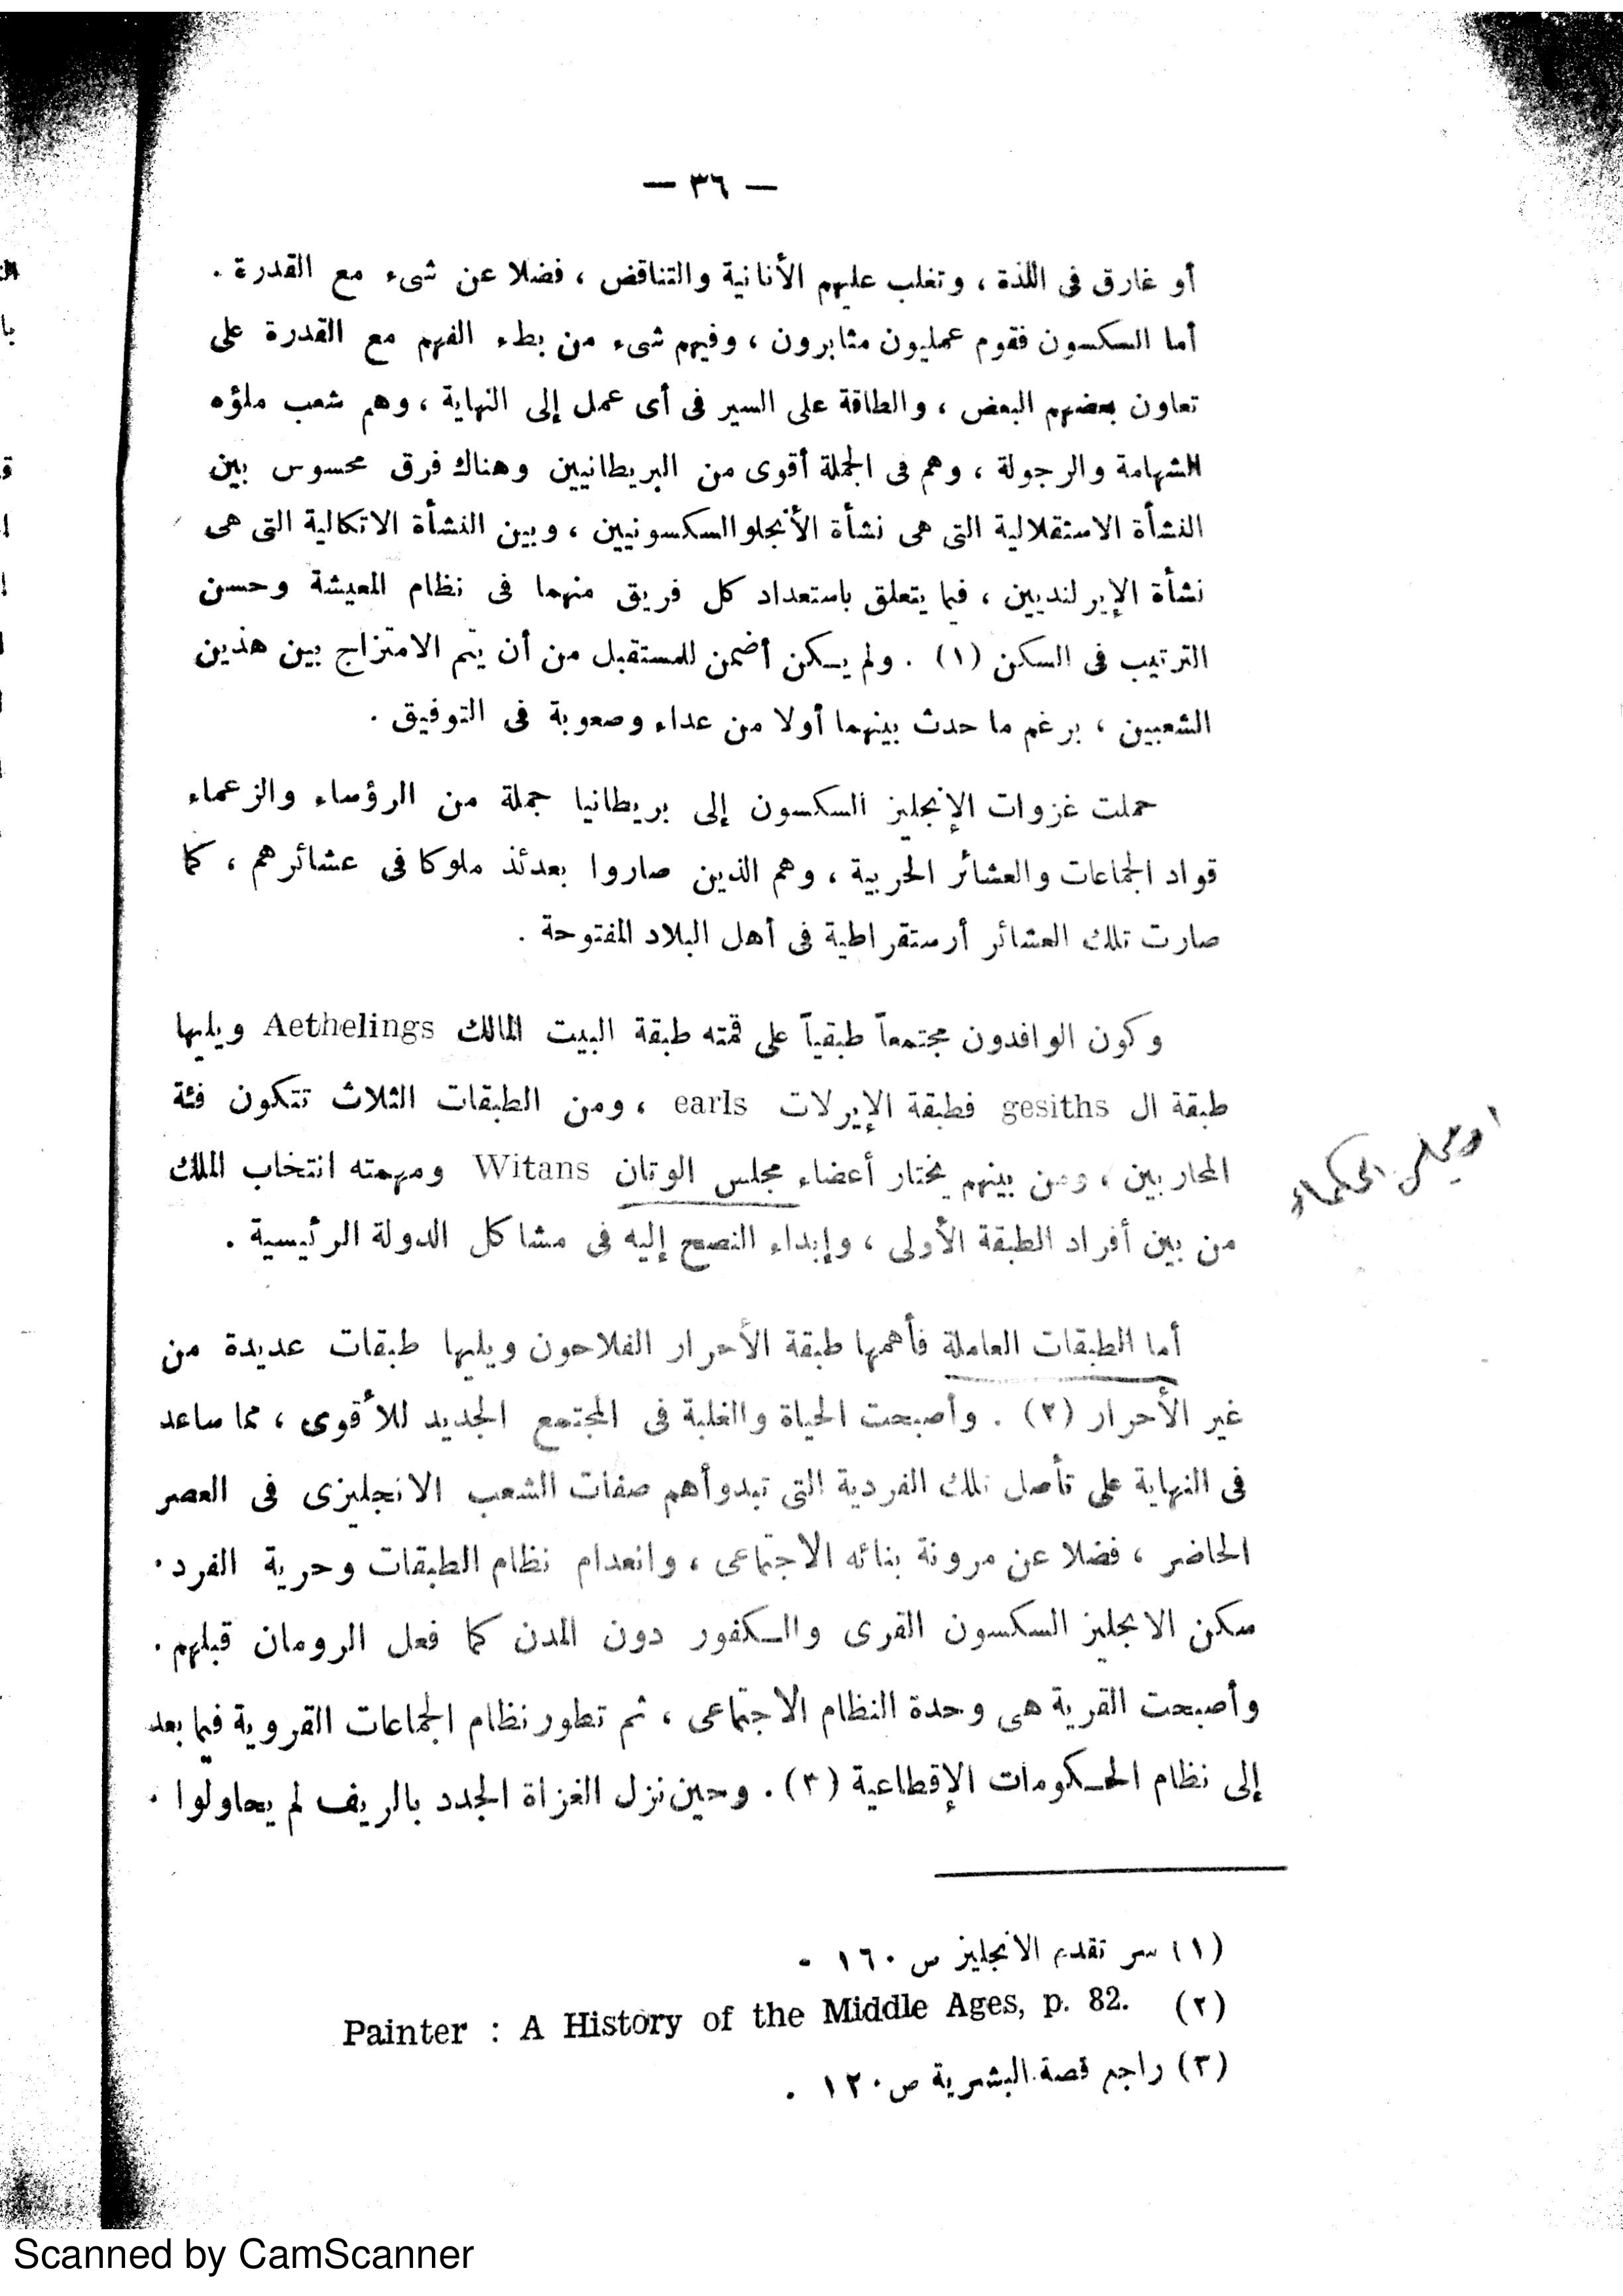 — ٣٦ —
أو غارق فى اللذة ، وتغلب عليهم الأنانية والتناقض ، فضلا عن شىء مع القدرة .
أما السكسون فقوم عمليون مثابرون ، وفيهم شىء من بطء الفهم مع القدرة على
تعاون بعضهم البعض ، والطاقة على السير فى أى عمل إلى النهاية ، وهم شعب ملؤه
الشهامة والرجولة ، وهم فى الجملة أقوى من البريطانيين وهناك فرق محسوس بين
النشأة الاستقلالية التى هى نشأة الأنجلو السكسونيين ، وبين النشأة الاتكالية التى هى
نشأة الإيرلنديين ، فيما يتعلق باستعداد كل فريق منهما فى نظام المعيشة وحسن
الترتيب فى السكن (١) . ولم يكن أضمن للمستقبل من أن يتم الامتزاج بين هذين
الشعبين ، برغم ما حدث بينهما أولا من عداء وصعوبة فى التوفيق .
حملت غزوات الإنجليز السكسون إلى بريطانيا جملة من الرؤساء والزعماء
قواد الجماعات والعشائر الحربية ، وهم الذين صاروا بعدئذ ملوكا فى عشائرهم ، كما
صارت تلك العشائر أرستقراطية فى أهل البلاد المفتوحة .
وكون الوافدون مجتمعاً طبقياً على قمته طبقة البيت المالك Aethelings ويليها
طبقة ال gesiths فطبقة الإيرلات earls ، ومن الطبقات الثلاث تتكون فئة
المحاربين ، ومن بينهم يختار أعضاء مجلس الوتان Witans ومهمته انتخاب الملك
او مجلس الحكماء
من بين أفراد الطبقة الأولى ، وإبداء النصح إليه فى مشاكل الدولة الرئيسية .
أما الطبقات العاملة فأهمها طبقة الأحرار الفلاحون ويليها طبقات عديدة من
غير الأحرار (٢) . وأصبحت الحياة والغلبة فى المجتمع الجديد للأقوى ، مما ساعد
فى النهاية على تأصل تلك الفردية التى تبدو أهم صفات الشعب الانجليزى فى العصر
الحاضر ، فضلا عن مرونة بنائه الاجتماعى ، وانعدام نظام الطبقات وحرية الفرد .
سكن الانجليز السكسون القرى والكفور دون المدن كما فعل الرومان قبلهم .
وأصبحت القرية هى وحدة النظام الاجتماعى ، ثم تطور نظام الجماعات القروية فيما بعد
إلى نظام الحكومات الإقطاعية (٣) . وحين نزل الغزاة الجدد بالريف لم يحاولوا .
(١) سر تقدم الانجليز ص ١٦٠ .
(٢) Painter : A History of the Middle Ages, p. 82.
(٣) راجع قصة البشرية ص ١٢٠ .
Scanned by CamScanner